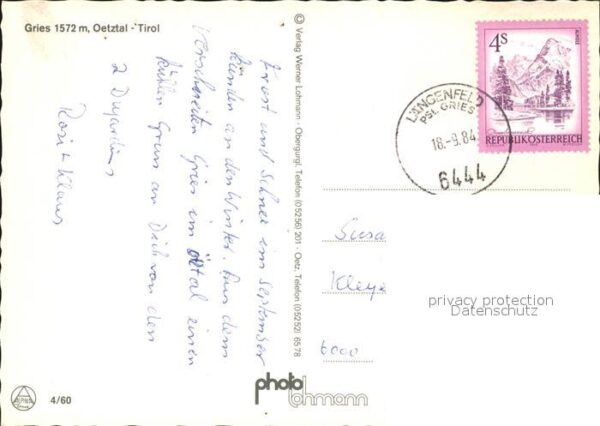 Gries 1572 m, Oetztal - Tirol
Frost und Schnee im September
künden an den Winter. Aus dem
verschneiten Gries im Ötztal einen
kühlen Gruss an Dich von den
2
Rosi + Klaus
© Verlag Werner Lohmann · Obergurgl, Telefon (05256) 201 · Oetz, Telefon (05252) 6578
4S
REPUBLIK ÖSTERREICH
LÄNGENFELD
PSt. GRIES
18.-9.84
6444
Susa
Kleye
6000
privacy protection
Datenschutz
photo
lohmann
4/60